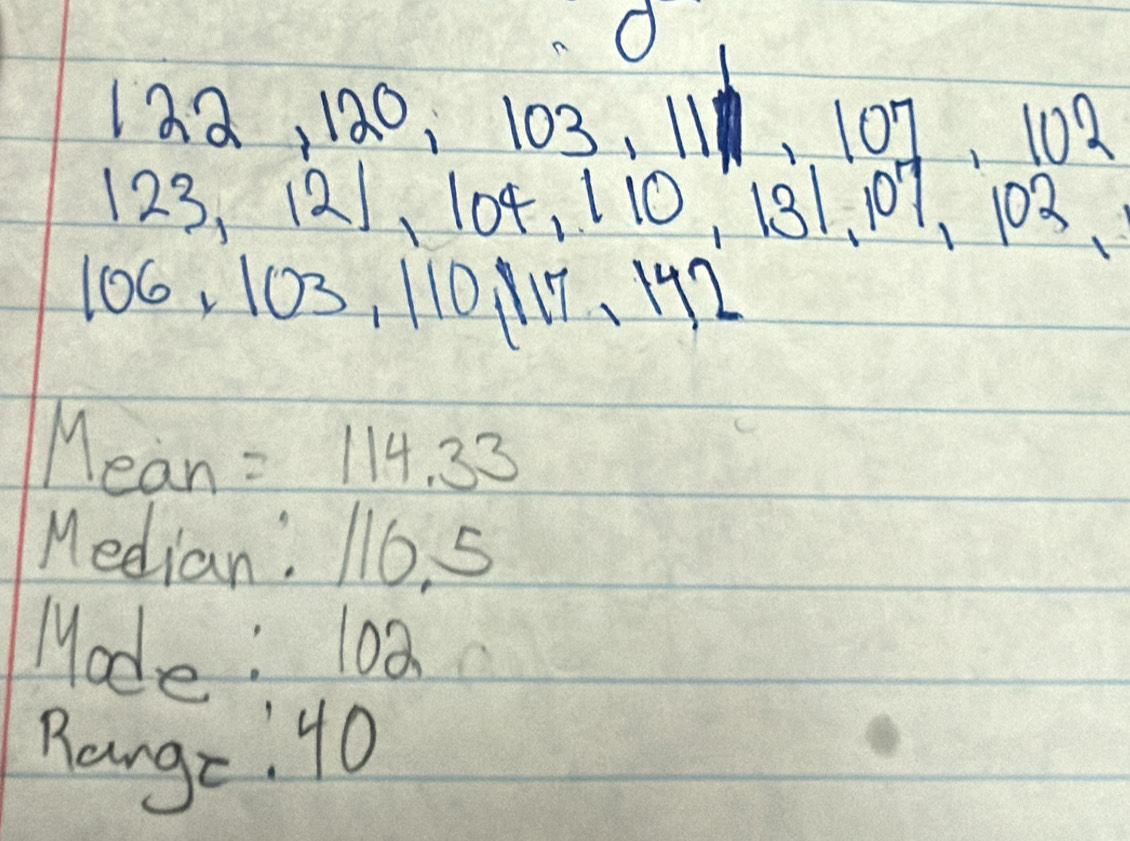 122, 120, 103, 111, 107, 102
123, 121, 104, 110, 131, 107, 102,
106, 103, 110, 117, 142
Mean = 114.33
Median: 110.5
Mode: 102
Range: 40